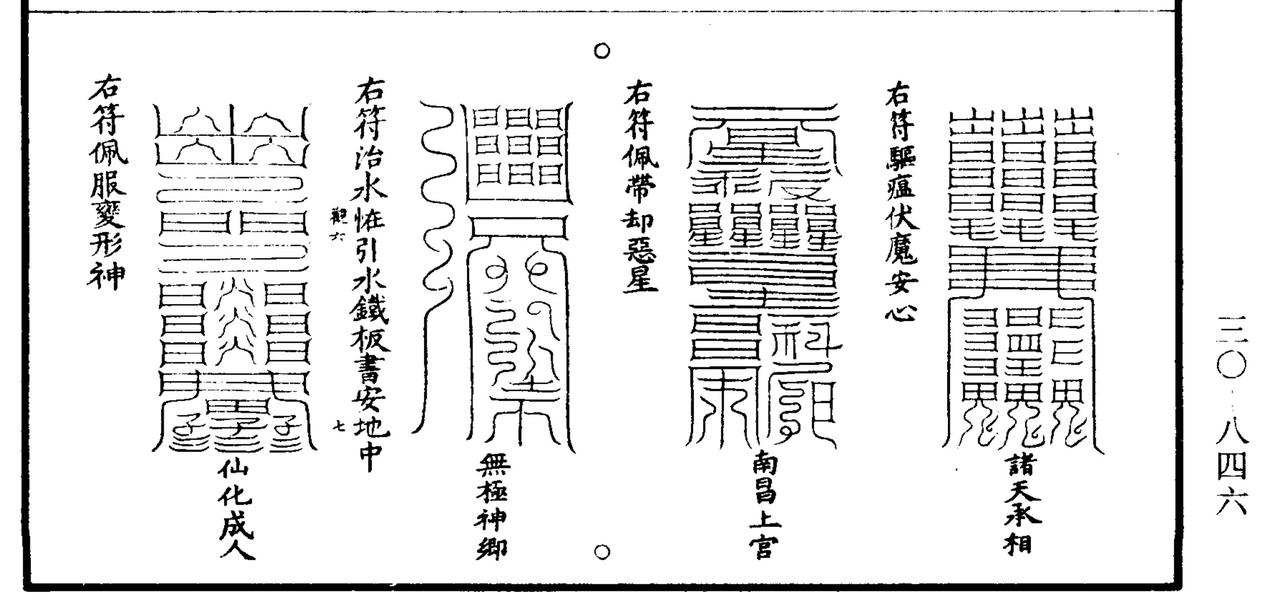 諸天承相
右符驅瘟伏魔安心
南昌上宮
右符佩帶却惡星
無極神鄉
右符治水恠引水鐵板書安地中
觀六
七
仙化成人
右符佩服變形神
三〇—八四六